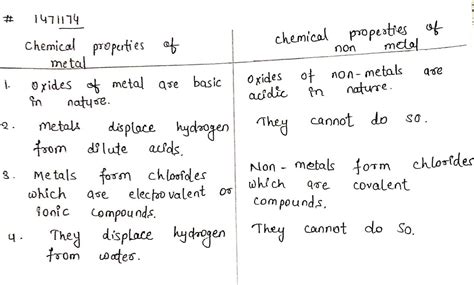 # 1471174
Chemical properties of metal
chemical properties of non metal
1. Oxides of metal are basic in nature.
Oxides of non-metals are acidic in nature.
2. Metals displace hydrogen from dilute acids.
They cannot do so.
3. Metals form chlorides which are electrovalent or ionic compounds.
Non-metals form chlorides which are covalent compounds.
4. They displace hydrogen from water.
They cannot do so.